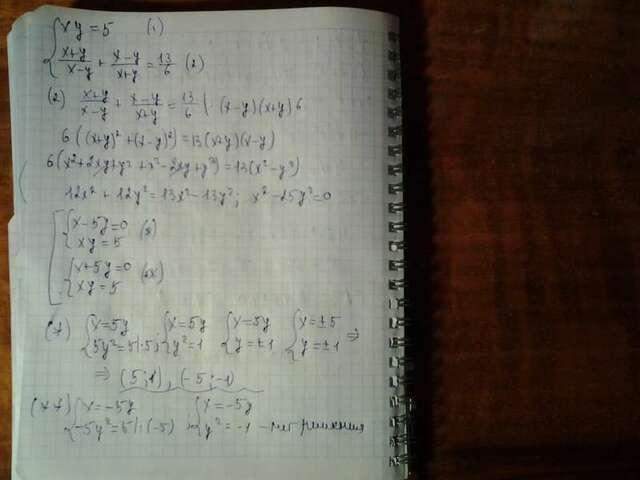 { xy = 5 (1)
{ x+y/x-y + x-y/x+y = 13/6 (2)
(2) x+y/x-y + x-y/x+y = 13/6 | · (x-y)(x+y)6
6((x+y)² + (x-y)²) = 13(x+y)(x-y)
6(x²+2xy+y² + x²-2xy+y²) = 13(x²-y²)
12x² + 12y² = 13x² - 13y²; x² - 25y² = 0
[ { x-5y=0
{ xy = 5 (*)
{ x+5y=0
{ xy = 5 (**)
(*) { x=5y { x=5y { x=5y { x=±5 ⇒
{ 5y²=5|:5; { y²=1 { y=±1 { y=±1
⇒ (5;1), (-5;-1)
(**) { x=-5y { x=-5y
{ -5y²=5|:(-5) ; { y²=-1 - нет решения